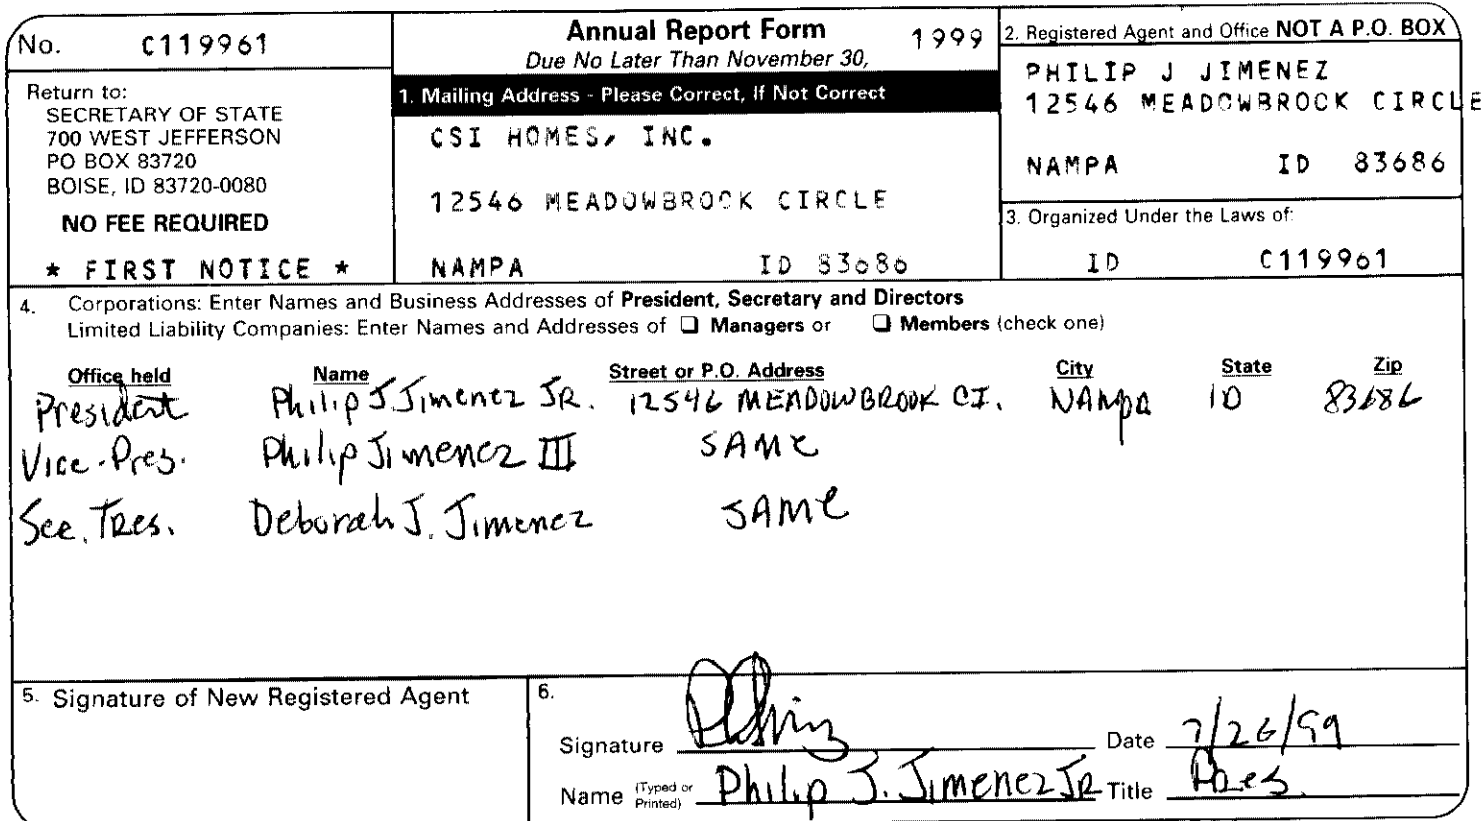 No. C119961
Return to:
SECRETARY OF STATE
700 WEST JEFFERSON
PO BOX 83720
BOISE, ID 83720-0080
NO FEE REQUIRED
* FIRST NOTICE *
Annual Report Form 1999
Due No Later Than November 30,
1. Mailing Address - Please Correct, If Not Correct
CSI HOMES, INC.
12546 MEADOWBROOK CIRCLE
NAMPA ID 83686
2. Registered Agent and Office NOT A P.O. BOX
PHILIP J JIMENEZ
12546 MEADOWBROOK CIRCLE
NAMPA ID 83686
3. Organized Under the Laws of:
ID C119961
4. Corporations: Enter Names and Business Addresses of President, Secretary and Directors
Limited Liability Companies: Enter Names and Addresses of ❑ Managers or ❑ Members (check one)
Office held Name Street or P.O. Address City State Zip
President Philip J. Jimenez JR. 12546 MEADOWBROOK CI. NAMPA ID 83686
Vice-Pres. Philip Jimenez III SAME
Sec. Tres. Deborah J. Jimenez SAME
5. Signature of New Registered Agent
6.
Signature Date 7/26/99
Name (Typed or Printed) Philip J. Jimenez JR Title Pres.